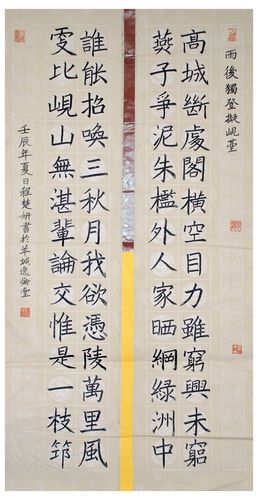 雨後獨登擬峴臺
高城斷處閣橫空目力雖窮興未窮
燕子爭泥朱檻外人家晒網綠洲中
誰能招喚三秋月我欲憑陵萬里風
更比峴山無湛輩論交惟是一枝筇
壬辰年夏日程楚妍書於羊城逸倫堂